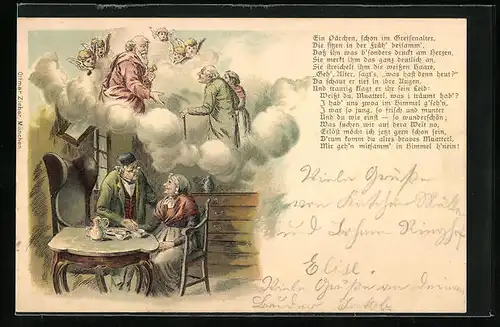 Ein Pärchen, schon im Greisenalter,
Die sitzen in der Früh' beisamm',
Daß ihn was b'sonders druckt am Herzen,
Sie merkt ihm das ganz deutlich an,
Sie streichelt ihm die weißen Haare,
„Geh', Alter, sagt's, „was hast denn heut?"
Da schaut er tief in ihre Augen,
Und traurig klagt er ihr sein Leid:
Weißt du, Muatterl, was i träumt hab'?
I hab' uns zwoa im Himmel g'seh'n,
I war so jung, so frisch und munter
Und du wie einst — so wunderschön;
Was suchen wir auf dera Welt no,
Erlöst möcht ich jetzt gern schon sein,
D'rum komm du altes braves Muatterl,
Mir geh'n mitsamm' in Himmel h'nein!
Viele Grüße
von
und Johann
Elise.
Viele Grüße an deinen
Bruder
Ottmar Zieher, München.